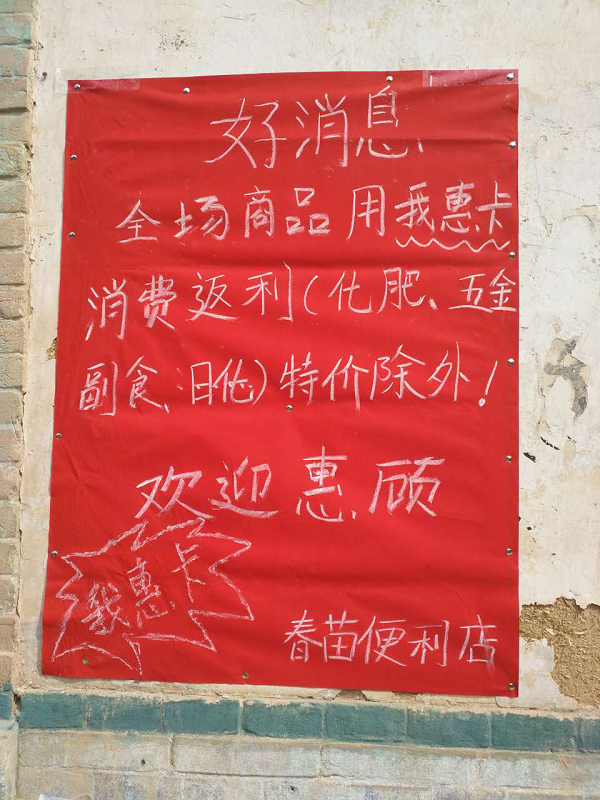 好消息
全场商品用我惠卡
消费返利(化肥、五金
副食、日化)特价除外!
欢迎惠顾
我惠卡
春苗便利店